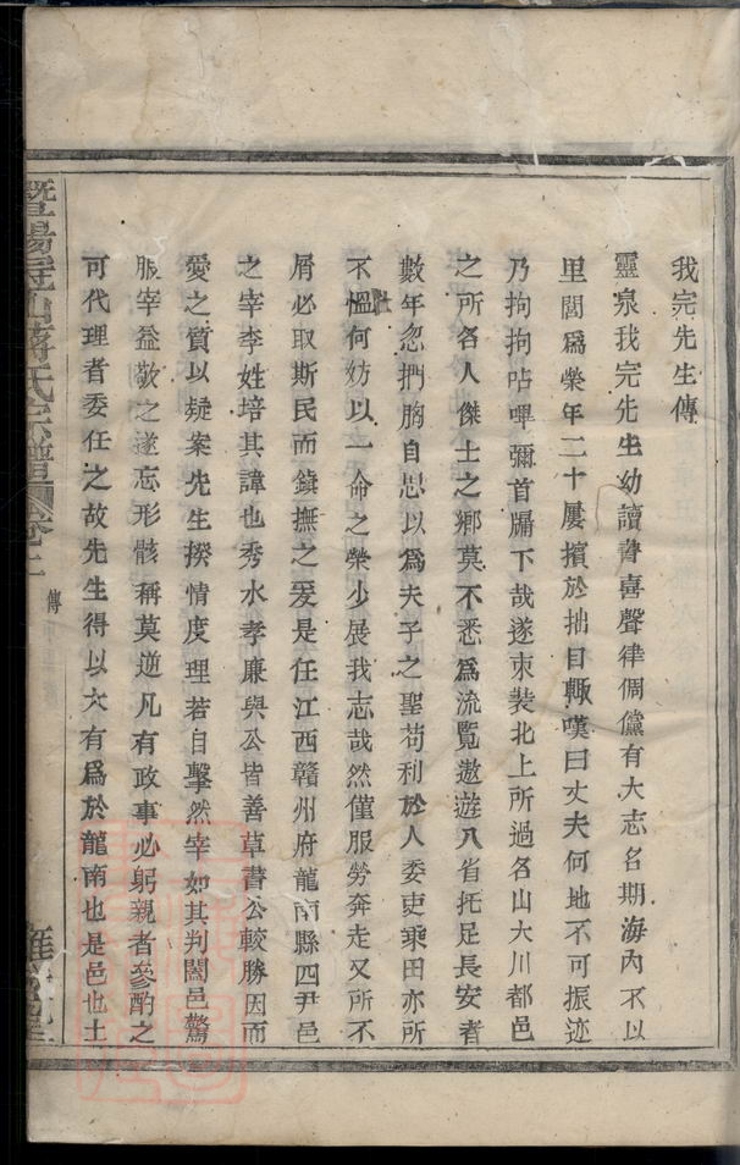 我完先生傳
靈泉我完先生幼讀書喜聲律倜儻有大志名期海內不以
里閭爲榮年二十屢擯於拙目輙嘆曰丈夫何地不可振迹
乃拘拘呫嗶彌首牖下哉遂束裝北上所過名山大川都邑
之所名人傑士之鄉莫不悉爲流覽遨遊八省托足長安者
數年忽捫胸自思以爲夫子之聖苟利於人委吏乘田亦所
不慍何妨以一命之榮少展我志哉然僅服勞奔走又所不
屑必取斯民而鎮撫之爰是任江西贛州府龍南縣四尹邑
之宰李姓培其諱也秀水孝廉與公皆善草書公較勝因而
愛之質以疑案先生揆情度理若自擊然宰如其判闔邑驚
服宰益敬之遂忘形骸稱莫逆凡有政事必躬親者參酌之
可代理者委任之故先生得以大有爲於龍南也是邑也土
暨陽 山蔣氏宗譜 卷二
傳